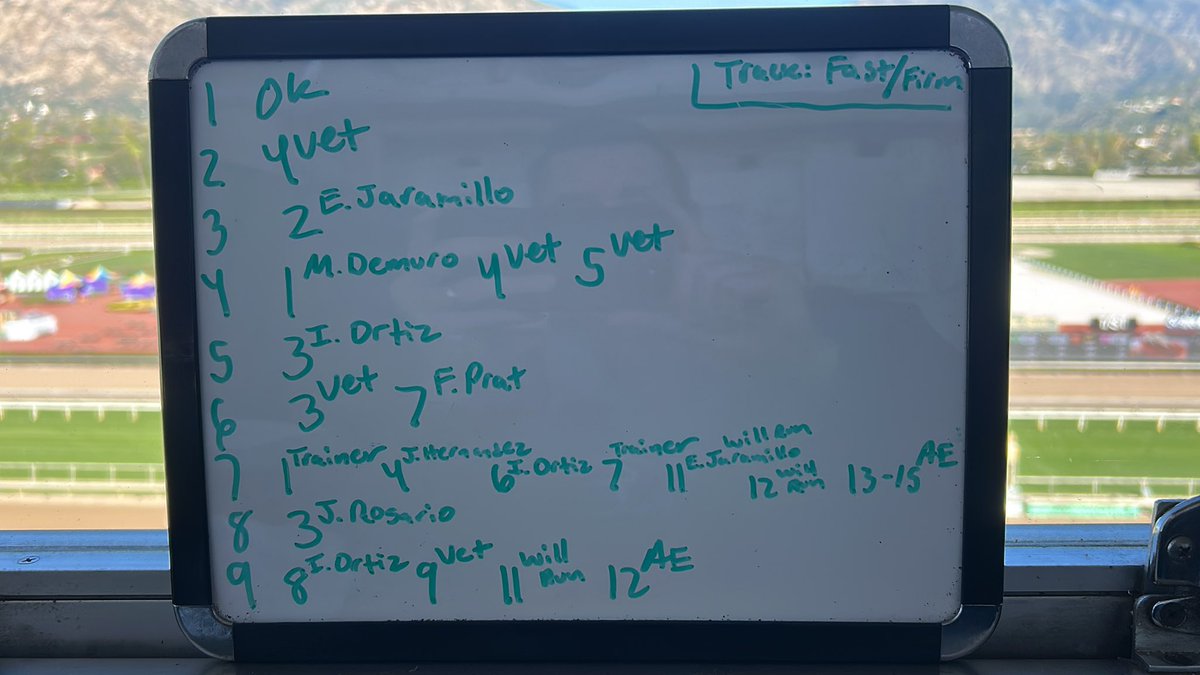 Track: Fast/Firm
1 Ok
2 4 vet
3 2 E. Jaramillo
4 1 M. Demuro 4 vet 5 vet
5 3 I. Ortiz
6 3 vet 7 F. Prat
7 1 Trainer 4 J. Hernandez 6 I. Ortiz 7 Trainer 11 E. Jaramillo will Run 12 will Run 13-15 AE
8 3 J. Rosario
9 8 I. Ortiz 9 vet 11 will Run 12 AE